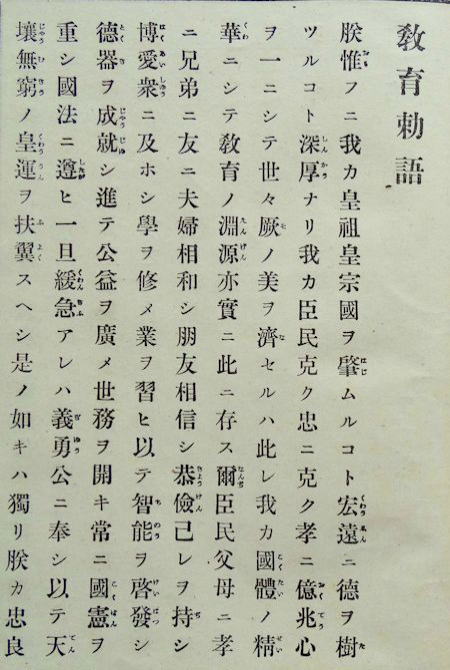 教育勅語
朕惟フニ我カ皇祖皇宗國ヲ肇ムルコト宏遠ニ德ヲ樹
ツルコト深厚ナリ我カ臣民克ク忠ニ克ク孝ニ億兆心
ヲ一ニシテ世々厥ノ美ヲ濟セルハ此レ我カ國體ノ精
華ニシテ敎育ノ淵源亦實ニ此ニ存ス爾臣民父母ニ孝
ニ兄弟ニ友ニ夫婦相和シ朋友相信シ恭儉己レヲ持シ
博愛衆ニ及ホシ學ヲ修メ業ヲ習ヒ以テ智能ヲ啓發シ
德器ヲ成就シ進テ公益ヲ廣メ世務ヲ開キ常ニ國憲ヲ
重シ國法ニ遵ヒ一旦緩急アレハ義勇公ニ奉シ以テ天
壤無窮ノ皇運ヲ扶翼スヘシ是ノ如キハ獨リ朕カ忠良